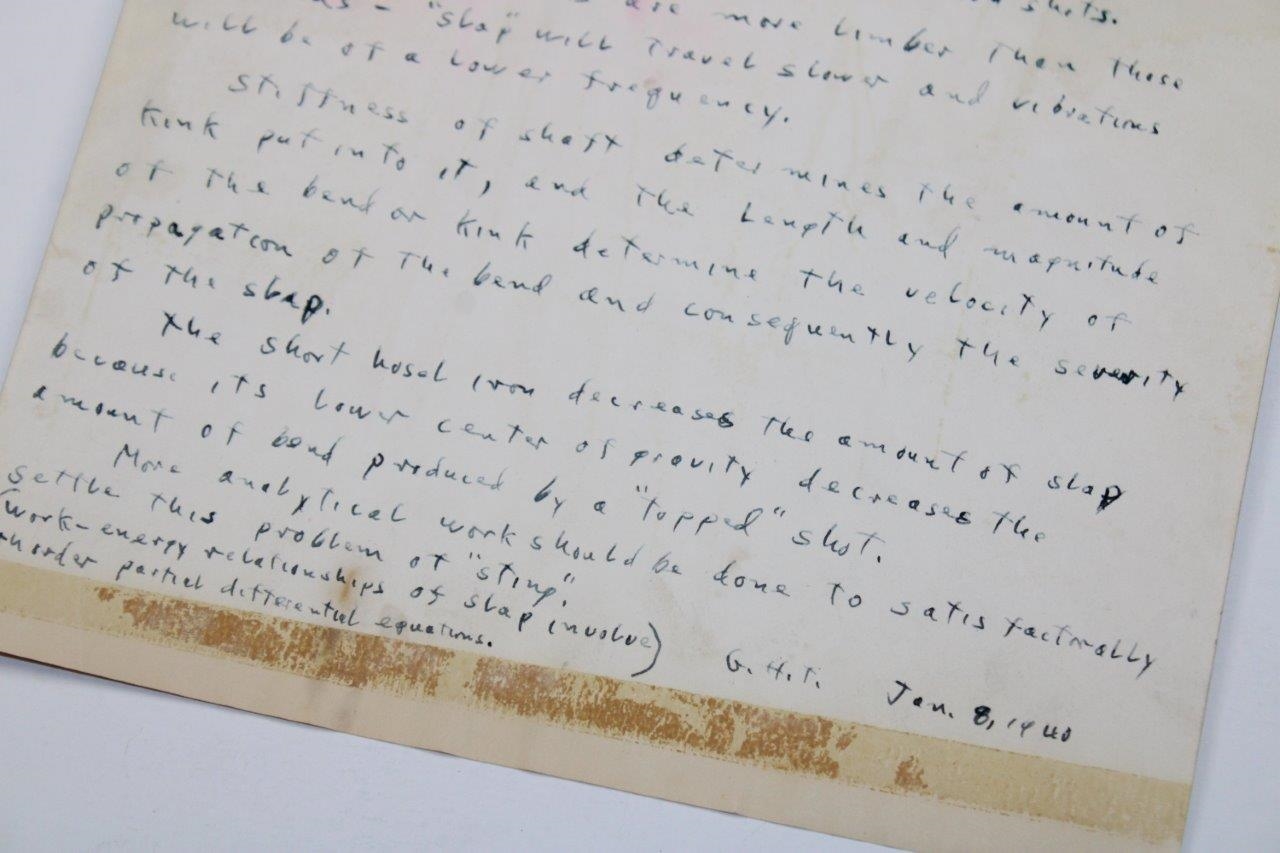 are more limber than those
- "slap" will travel slower and vibrations
will be of a lower frequency.
Stiffness of shaft determines the amount of
kink put into it, and the length and magnitude
of the bend or kink determine the velocity of
propagation of the bend and consequently the severity
of the slap.
The short hosel iron decreases the amount of slap
because its lower center of gravity decreases the
amount of bend produced by a "topped" shot.
More analytical work should be done to satisfactorally
settle this problem of "sting".
(Work-energy relationships of slap involve)
order partial differential equations.
G.H.T. Jan. 8, 1940